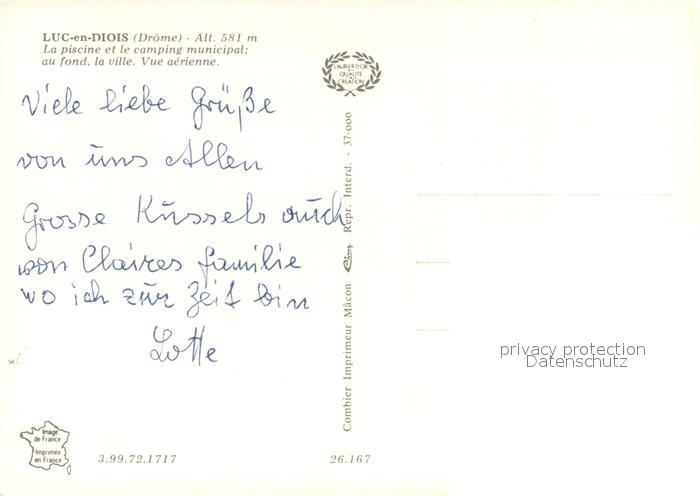 LUC-en-DIOIS (Drôme) - Alt. 581 m
La piscine et le camping municipal;
au fond, la ville. Vue aérienne.
LAURIER D'OR
QUALITÉ
CRÉATION
Viele liebe Grüße
von uns Allen
Grosse Küssels auch
von Claires familie
wo ich zür Zeit bin
Lotte
Combier Imprimeur Mâcon Cim Repr. Interd. - 37-000
privacy protection
Datenschutz
Image
de France
Imprimée
en France
3.99.72.1717
26.167